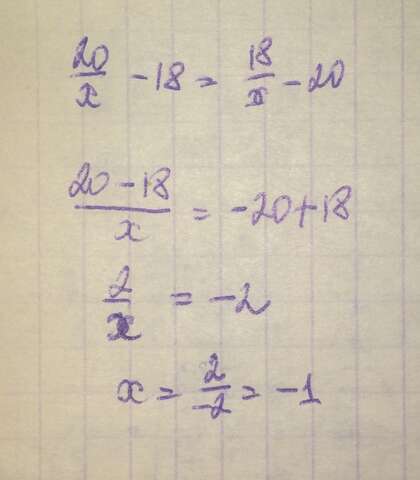 20/x - 18 = 18/x - 20
(20 - 18)/x = -20 + 18
2/x = -2
x = 2/-2 = -1